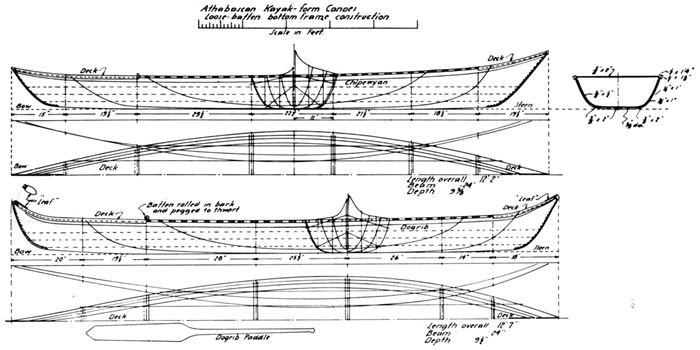 Athabascan Kayak-form Canoes
Loose-batten bottom frame construction
Scale in Feet.
Deck
Chipewyan
Deck
Bow
Stern
15"
19½"
29½"
22"
11"
21½"
18½"
19½"
Bow
Deck
Deck
Length overall 12' 2"
Beam 24"
Depth
"Leaf"
Deck
Batten rolled in bark
and pegged to thwart
Dogrib
Deck
"Leaf"
Bow
Stern
20"
28"
25½"
26"
14"
18"
Deck
Deck
Dogrib Paddle
Length overall 12' 7"
Beam 24"
Depth 9½"